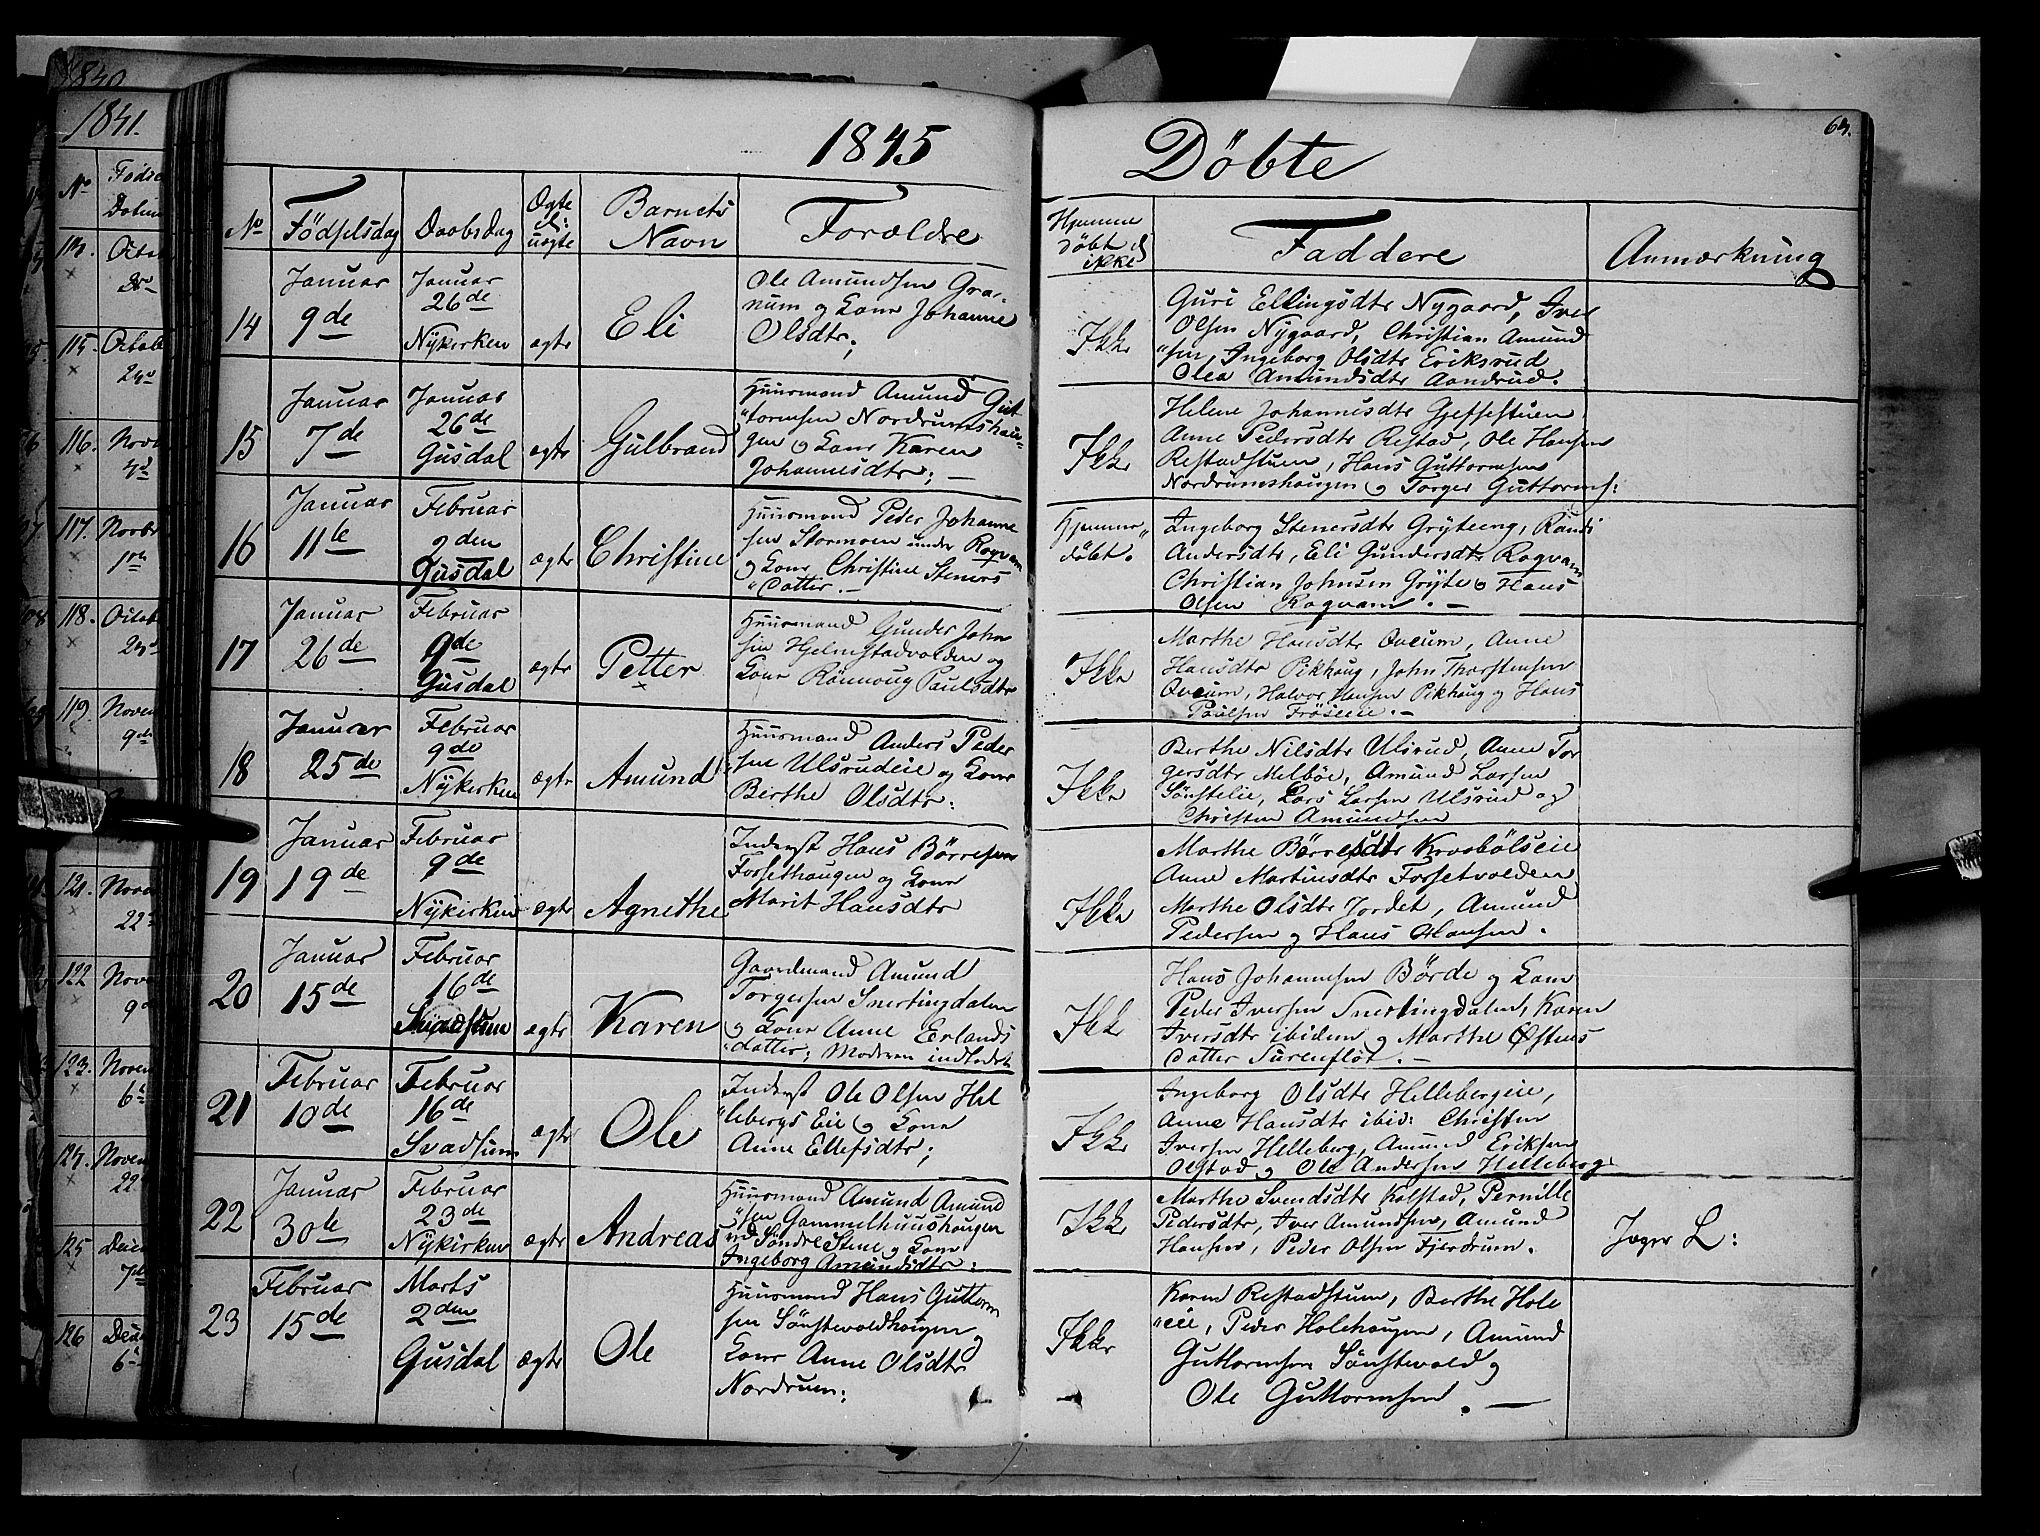 1840
1841.
No
Fødse
Datum
1845
Døbte
64.
No
Födselsdag
Daabsdag
Ægte
el:
uægte
Barnets
Navn
Forældre
Hjemme
døbt el
ikke
Faddere
Anmærkning
14
Januar
9de
Januar
26de
Nykirken
ægte
Eli
Ole Amundsen Gra-
num og Kone Johanne
Olsdtr;
Ikke
Guri Ellingsdtr Nygaard, Iver
Olsen Nygaard, Christian Amund
"sen, Ingeborg Olsdtr Eriksrud
Olea Amundsdtr Aandrud.
15
Januar
7de
Januar
26de
Gusdal
ægte
Gulbrand
Huusmand Amund Gut
"tormsen Nordrumshau-
gen og Kone Karen
Johannesdtr; —
Ikke
Helene Johannesdtr Gjeffestuen
Anne Pedersdtr Restad, Ole Hansen
Restadstuen, Hans Guttormsen
Nordrumshaugen og Torger Guttorms:
16
Januar
11te
Februar
2den
Gusdal
ægte
Christine
Huusmand Peder Johanne
sen Stormoen under Rogvam
og Kone Christine Steners
"Datter. —
Hjemme"
døbt.
Ingeborg Stenersdtr Gryteeng, Randi
Andersdtr, Eli Gundersdtr Rogvam
Christian Johnsen Gryte og Hans
Olsen Rogvam. —
17
Januar
26de
Februar
9de
Gusdal
ægte
Petter
Huusmand Gunder John
sen Hjelmstadvolden og
Kone Rønnoug Paulsdtr
Ikke
Marthe Hansdtr Qveum, Anne
Hansdtr Pikhaug, John Thorstensen
Qveum, Halvor Hansen Pikhaug og Hans
Paulsen Frøseie. —
18
Januar
25de
Februar
9de
Nykirken
ægte
Amund
Huusmand Anders Peder
"sen Ulsrudeie og Kone
Berthe Olsdtr:
Ikke
Berthe Nilsdtr Ulsrud, Anne Tor
gersdtr Melbøe, Amund Larsen
Sønstelie, Lars Larsen Ulsrud og
Christen Amundsen
19
Januar
19de
Februar
9de
Nykirken
ægte
Agnethe
Inderst Hans Børresen
Forsethaugen og Kone
Marit Hansdtr
Ikke
Marthe Børresdtr Krosbølseie
Anne Martinsdtr Forsetvolden
Marthe Olsdtr Jordet, Amund
Pedersen og Hans Hansen.
20
Januar
15de
Februar
16de
Svadsum
ægte
Karen
Gaardmand Amund
Torgersen Snertingdalen
og Kone Anne Erlands
"datter; Moderen indledet
Ikke
Hans Johannesen Börde og Kone
Peder Iversen Snertingdalen, Karen
Iversdtr ibidem og Marthe Østens
Datter Surenflöt. —
21
Februar
10de
Februar
16de
Svadsum
ægte
Ole
Inderst Ole Olsen Hel
"lebergs Eie og Kone
Anne Ellefsdtr;
Ikke
Ingeborg Olsdtr Hellebergeie,
Anne Hansdtr ibid: Christen
Iversen Helleberg, Amund Eriksen
Olstad og Ole Andersen Helleberg
22
Januar
30te
Februar
23de
Nykirken
ægte
Andreas
Huusmand Amund Amund
"sen Gammelhuushaugen
Søndre Stene og Kone
Ingeborg Amundsdtr:
Ikke
Marthe Svendsdtr Kolstad, Pernille
Pedersdtr, Iver Amundsen, Amund
Hansen, Peder Olsen Fjerdrum.
Jæger L:
23
Februar
15de
Marts
2den
Gusdal
ægte
Ole
Huusmand Hans Guttorm
sen Sønstevoldhaugen og
Kone Anne Olsdtr
Nordrum;
Ikke
Karen Restadstuen, Berthe Hole
"eie, Peder Holehaugen, Amund
Guttormsen Sønstevold og
Ole Guttormsen. —
115.
Octob
116.
Nov
117.
Novbr
118.
Octob
119.
Noven
9de
121.
Nove
22
122
Nove
9de
123.
Noven
124.
Noven
22
125
Decem
126
Decem